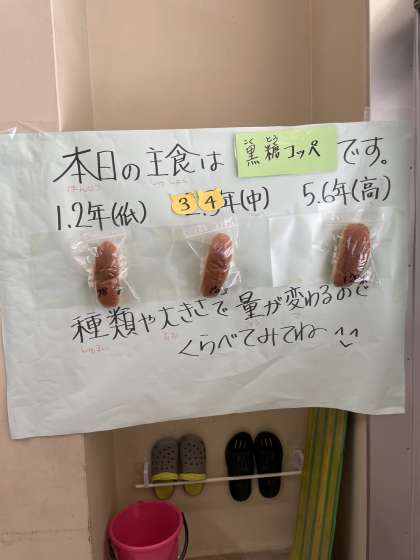 本日の主食は 黒糖コッペ です。
1.2年(低) 3 4年(中) 5.6年(高)
種類や大きさで量が変わるので
くらべてみてね